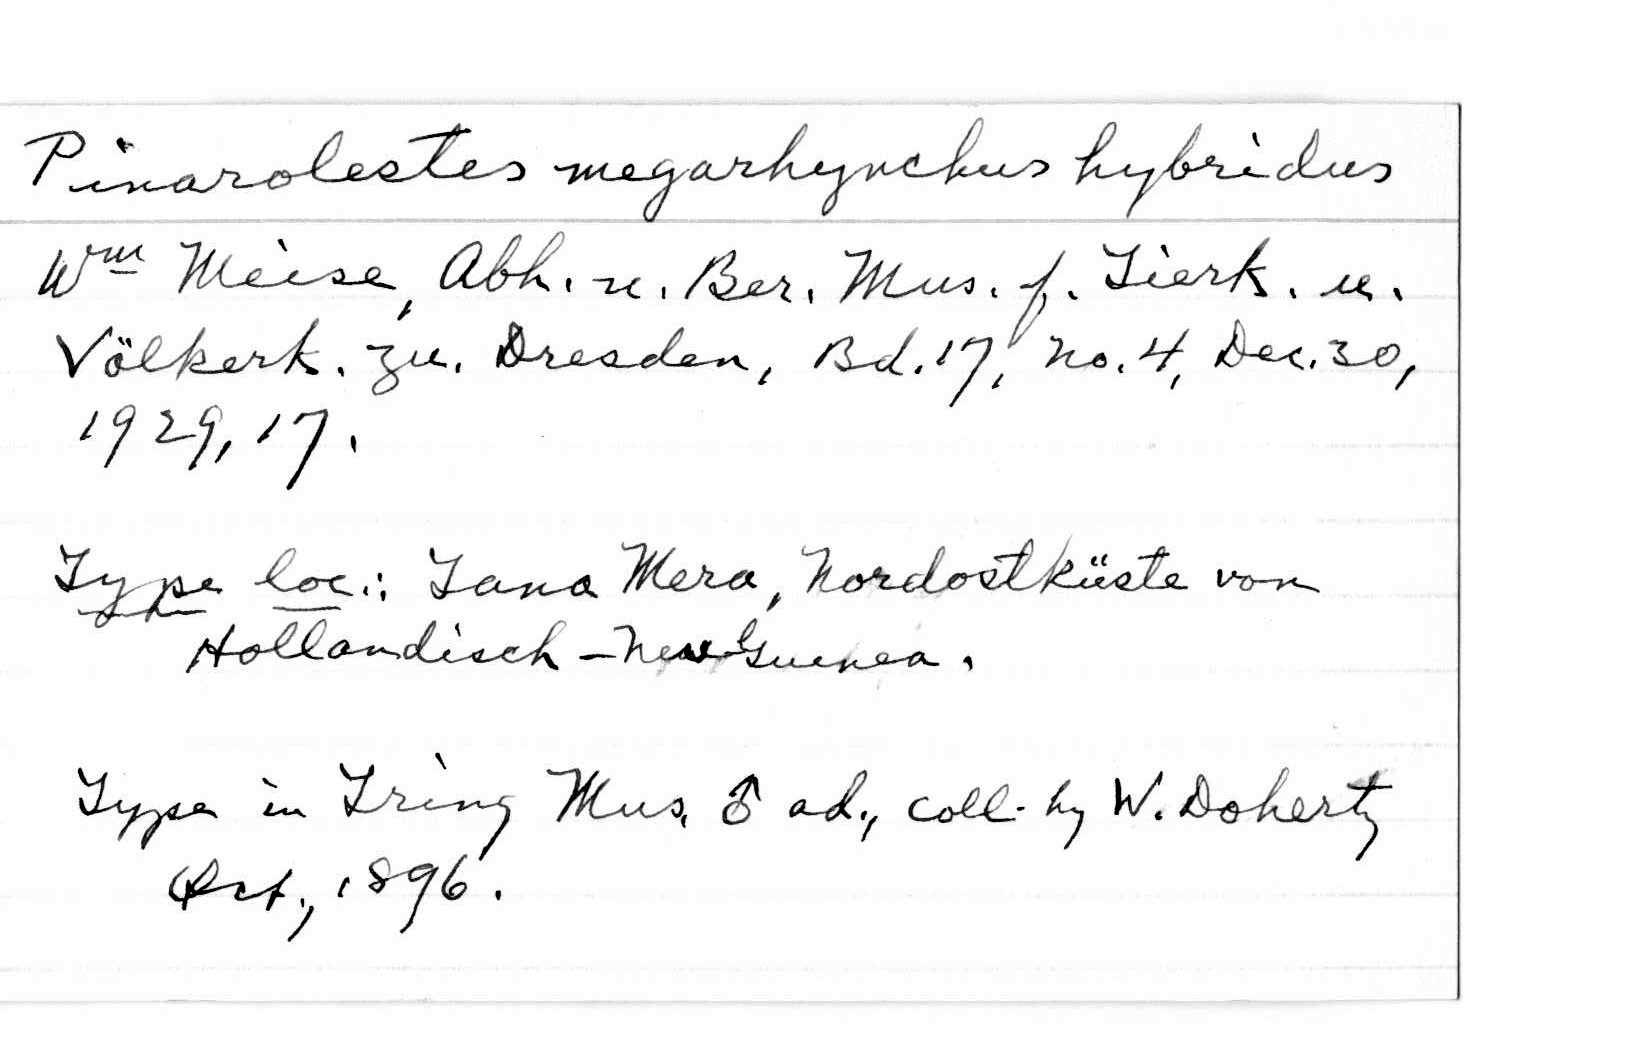 Pinarolestes megarhynchus hybridus
Wm Meise, Abh. u. Ber. Mus. f. Tierk. u.
Völkerk. zu. Dresden, Bd. 17, no. 4, Dec. 30,
1929, 17.
Type loc.: Tana Mera, Nordostküste von
Hollandisch-New Guinea.
Type in Tring Mus. ♂ ad., coll. by W. Doherty
Oct., 1896.